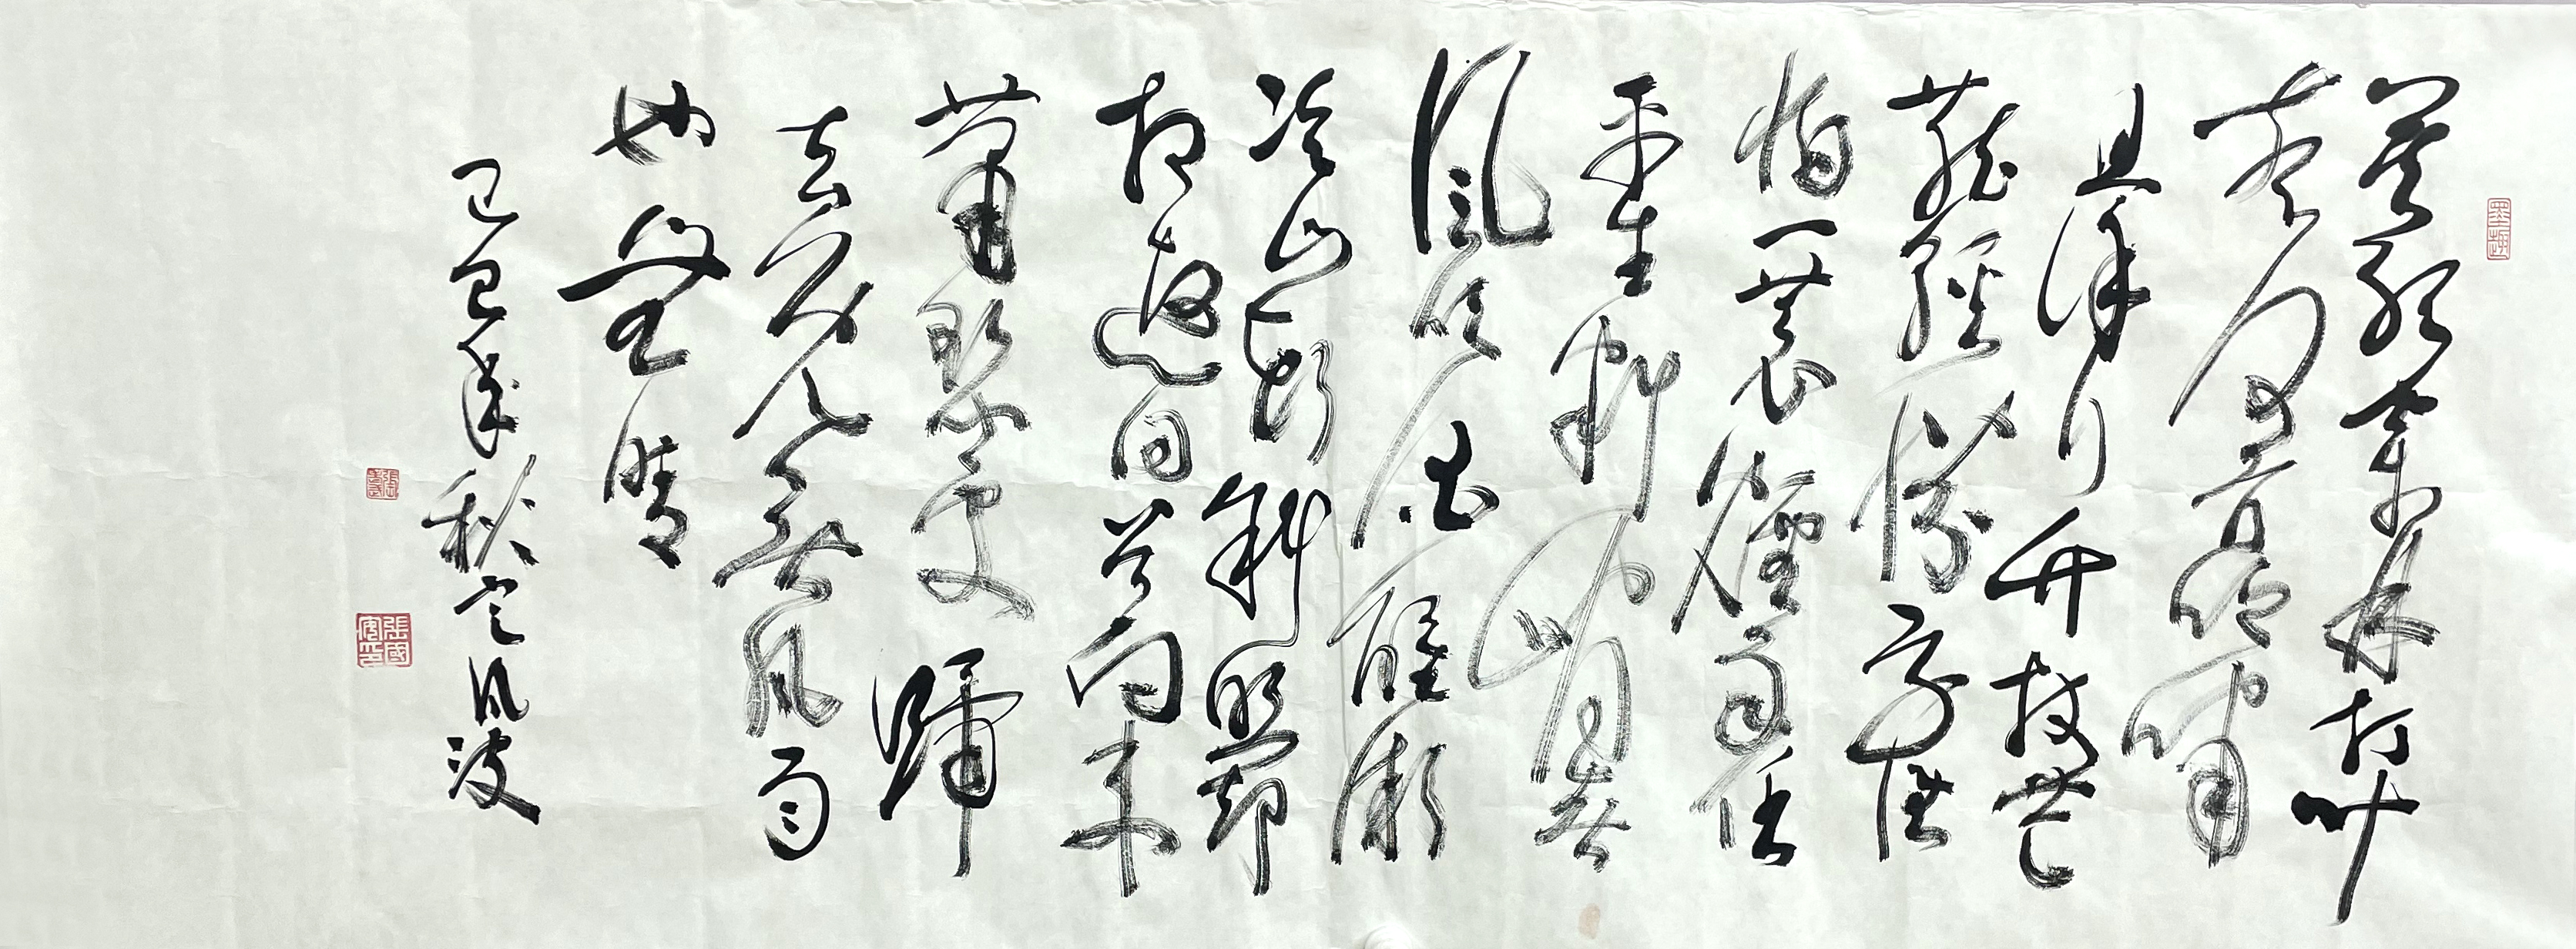 墨趣
莫聽穿林打叶
声何妨吟嘯
且徐行竹杖芒
鞋輕勝馬誰
怕一蓑煙雨任
平生料峭春
風吹酒醒微
冷山頭斜照卻
相迎回首向來
蕭瑟處歸
去也无風雨
也無晴
乙巳年秋定風波